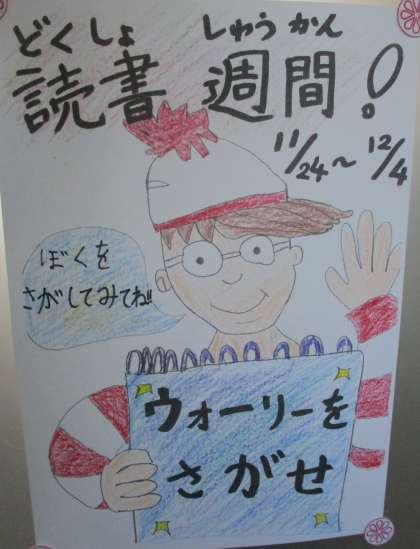 どくしょ しゅうかん
読書 週間!
11/24~12/4
ぼくを
さがしてみてね!!
ウォーリーを
さがせ